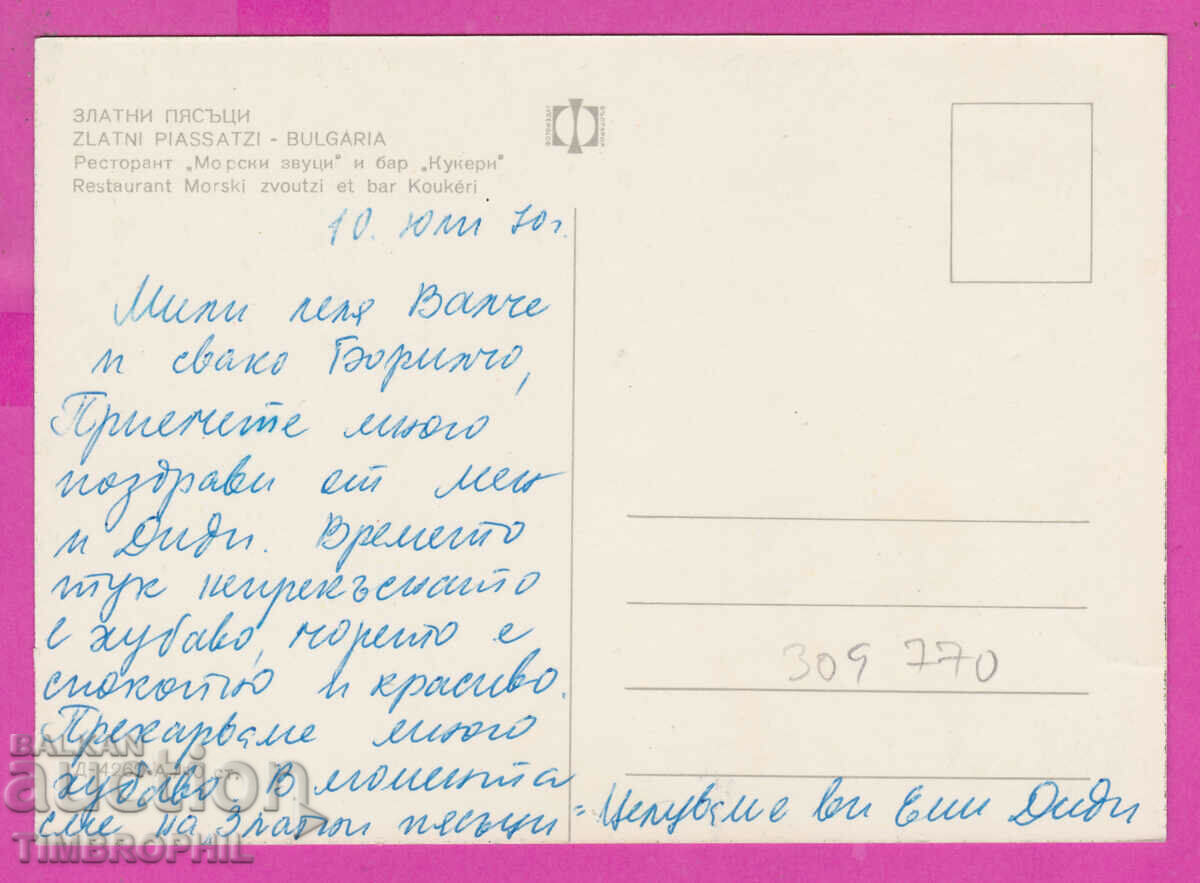 ЗЛАТНИ ПЯСЪЦИ
ZLATNI PIASSATZI - BULGARIA
Ресторант „Морски звуци" и бар „Кукери"
Restaurant Morski zvoutzi et bar Koukéri
10. Юли 70г.
Мили леля Ванче
и свако Боринчо,
Приемете много
поздрави от мен
и Диди. Времето
тук непрекъснато
е хубаво, морето е
спокойно и красиво.
Прекарваме много
хубаво. В момента
сме на Златни пясъци
Целуваме ви Ели Диди
309 770
BALKAN
auction
TIMBROPHIL